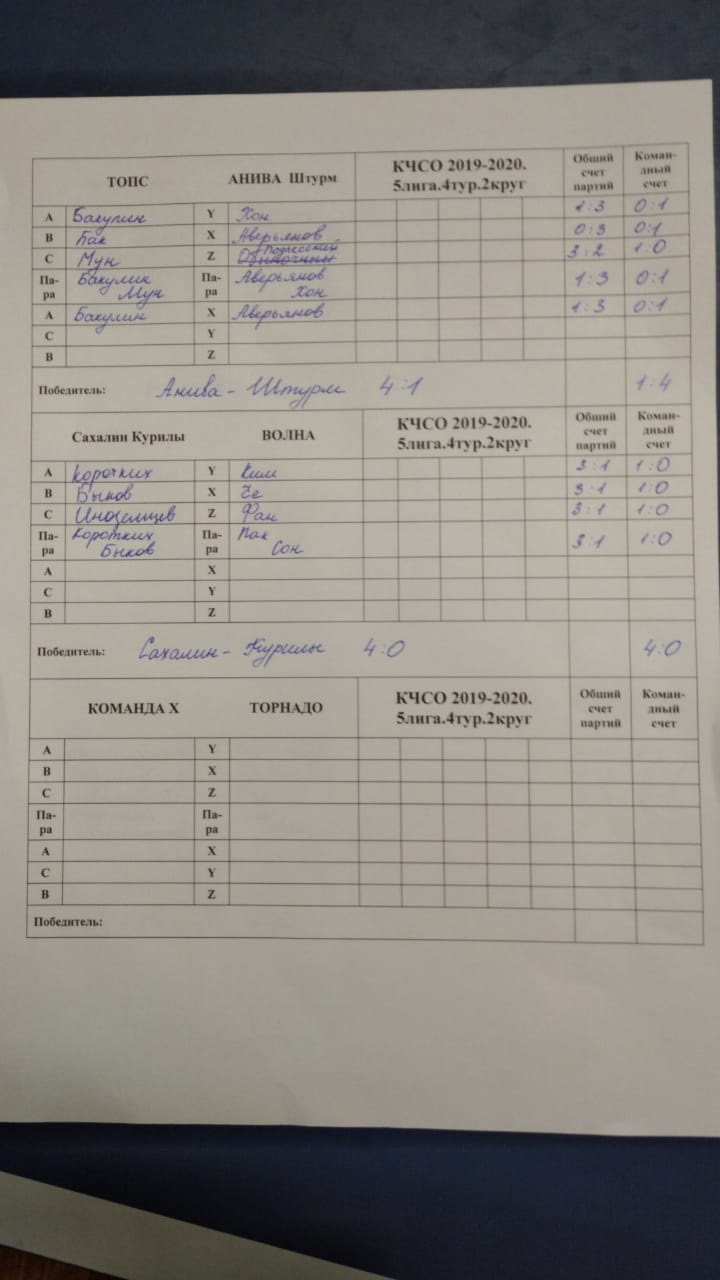 ТОПС АНИВА Штурм КЧСО 2019-2020. 5лига.4тур.2круг Общий счет партий Коман-дный счет
А Бакулин Y Хон 1:3 0:1
В Пак X Аверьянов 0:3 0:1
С Мун Z 3:2 1:0
Па-ра Бакулин Мун Па-ра Аверьянов Хон 1:3 0:1
А Бакулин X Аверьянов 1:3 0:1
С Y
В Z
Победитель: Анива - Штурм 4:1 1:4
Сахалин Курилы ВОЛНА КЧСО 2019-2020. 5лига.4тур.2круг Общий счет партий Коман-дный счет
А Коротких Y Ким 3:1 1:0
В Быков X Че 3:1 1:0
С Иноземцев Z Фан 3:1 1:0
Па-ра Коротких Быков Па-ра Пак Сон 3:1 1:0
А X
С Y
В Z
Победитель: Сахалин - Курилы 4:0 4:0
КОМАНДА Х ТОРНАДО КЧСО 2019-2020. 5лига.4тур.2круг Общий счет партий Коман-дный счет
А Y
В X
С Z
Па-ра Па-ра
А X
С Y
В Z
Победитель: